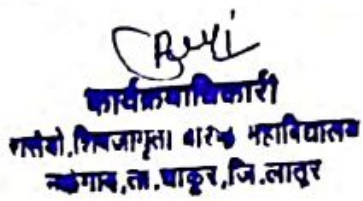 कार्यक्रमाधिकारी
रासेयो.शिवजागृती वरिष्ठ महाविद्यालय
नळेगाव,ता.चाकुर,जि.लातूर